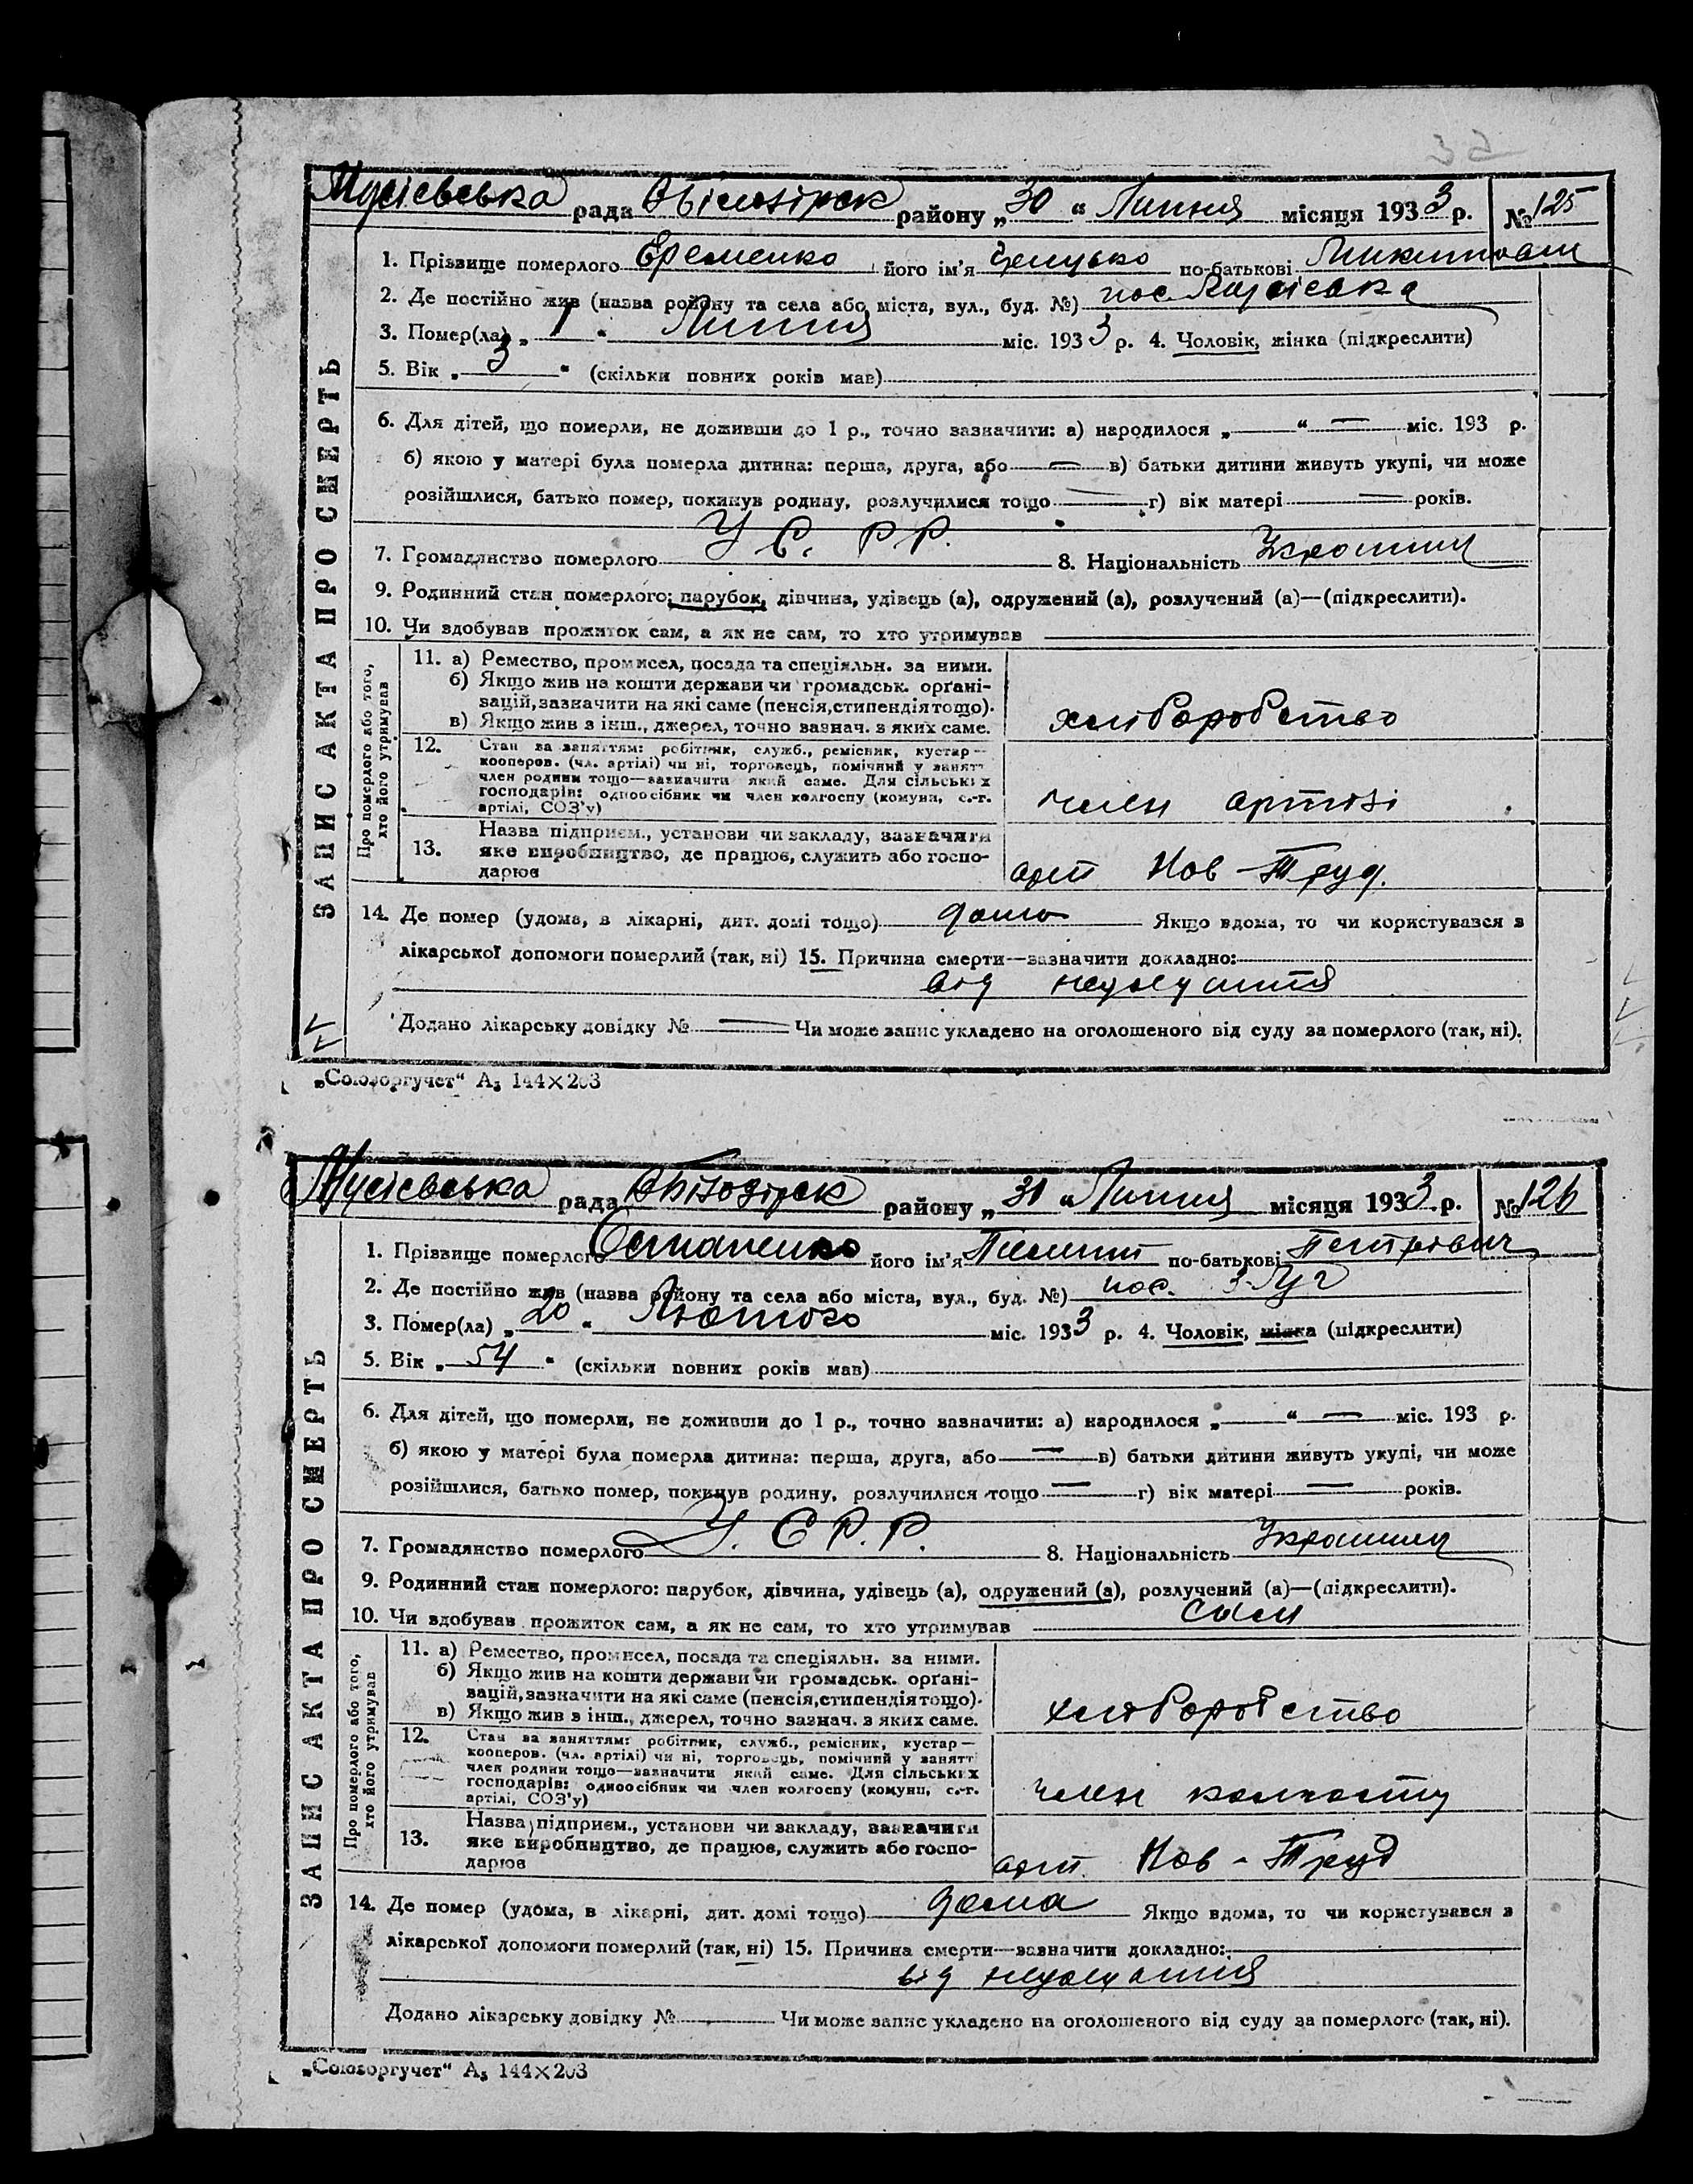 Мусіевська рада Обілозірск району „30“ Липня місяця 1933 р. № 125
1. Прізвище померлого Еременко його ім'я Грицько по-батькові Микитович
2. Де постійно жив (назва району та села або міста, вул., буд. №) пос. Мусіевка
3. Помер(ла) „1“ Липня міс. 1933 р. 4. Чоловік, жінка (підкреслити)
5. Вік „3“ (скільки повних років мав)
6. Для дітей, що померли, не доживши до 1 р., точно зазначити: а) народилося „—“ — міс. 193 р.
б) якою у матері була померла дитина: перша, друга, або — в) батьки дитини живуть укупі, чи може
розійшлися, батько помер, покинув родину, розлучилися тощо — г) вік матері — років.
7. Громадянство померлого У С. Р.Р. 8. Національність Украинец
9. Родинний стан померлого: парубок, дівчина, удівець (а), одружений (а), розлучений (а)—(підкреслити).
10. Чи здобував прожиток сам, а як не сам, то хто утримував
ЗАПИС АКТА ПРО СМЕРТЬ
Про померлого або того, хто його утримував
11. а) Ремество, промисел, посада та спеціяльн. за ними.
б) Якщо жив на кошти держави чи громадськ. органі-
зацій, зазначити на які саме (пенсія, стипендія тощо).
в) Якщо жив з інш., джерел, точно зазнач. з яких саме.
хліборобство
12. Стан за заняттям: робітник, служб., ремісник, кустар—
кооперов. (чл. артілі) чи ні, торговець, помічний у занятті
член родини тощо—зазначити який саме. Для сільських
господарів: одноосібник чи член колгоспу (комуни, с.-г.
артілі, СОЗ'у)
член артілі
13. Назва підприєм., установи чи закладу, зазначити
яке виробництво, де працює, служить або госпо-
дарює
арт Нов-Труд.
14. Де помер (удома, в лікарні, дит. домі тощо) дома Якщо вдома, то чи користувався з
лікарської допомоги померлий (так, ні) 15. Причина смерти—зазначити докладно:
від недоїдання
Додано лікарську довідку № — Чи може запис укладено на оголошеного від суду за померлого (так, ні).
„Союзоргучет“ А₅ 144×203
Мусіевська рада Обілозірск району „31“ Липня місяця 1933 р. № 126
1. Прізвище померлого Остапенко його ім'я Пилип по-батькові Петрович
2. Де постійно жив (назва району та села або міста, вул., буд. №) пос. Луг
3. Помер(ла) „20“ Лютого міс. 1933 р. 4. Чоловік, жінка (підкреслити)
5. Вік „54“ (скільки повних років мав)
6. Для дітей, що померли, не доживши до 1 р., точно зазначити: а) народилося „—“ — міс. 193 р.
б) якою у матері була померла дитина: перша, друга, або — в) батьки дитини живуть укупі, чи може
розійшлися, батько помер, покинув родину, розлучилися тощо — г) вік матері — років.
7. Громадянство померлого У. С Р. Р. 8. Національність Украинец
9. Родинний стан померлого: парубок, дівчина, удівець (а), одружений (а), розлучений (а)—(підкреслити).
10. Чи здобував прожиток сам, а як не сам, то хто утримував сам
ЗАПИС АКТА ПРО СМЕРТЬ
Про померлого або того, хто його утримував
11. а) Ремество, промисел, посада та спеціяльн. за ними.
б) Якщо жив на кошти держави чи громадськ. органі-
зацій, зазначити на які саме (пенсія, стипендія тощо).
в) Якщо жив з інш., джерел, точно зазнач. з яких саме.
хліборобство
12. Стан за заняттям: робітник, служб., ремісник, кустар—
кооперов. (чл. артілі) чи ні, торговець, помічний у занятті
член родини тощо—зазначити який саме. Для сільських
господарів: одноосібник чи член колгоспу (комуни, с.-г.
артілі, СОЗ'у)
член колхоспу
13. Назва підприєм., установи чи закладу, зазначити
яке виробництво, де працює, служить або госпо-
дарює
арт. Нов-Труд
14. Де помер (удома, в лікарні, дит. домі тощо) дома Якщо вдома, то чи користувався з
лікарської допомоги померлий (так, ні) 15. Причина смерти—зазначити докладно:
від недоїдання
Додано лікарську довідку № Чи може запис укладено на оголошеного від суду за померлого (так, ні).
„Союзоргучет“ А₅ 144×203